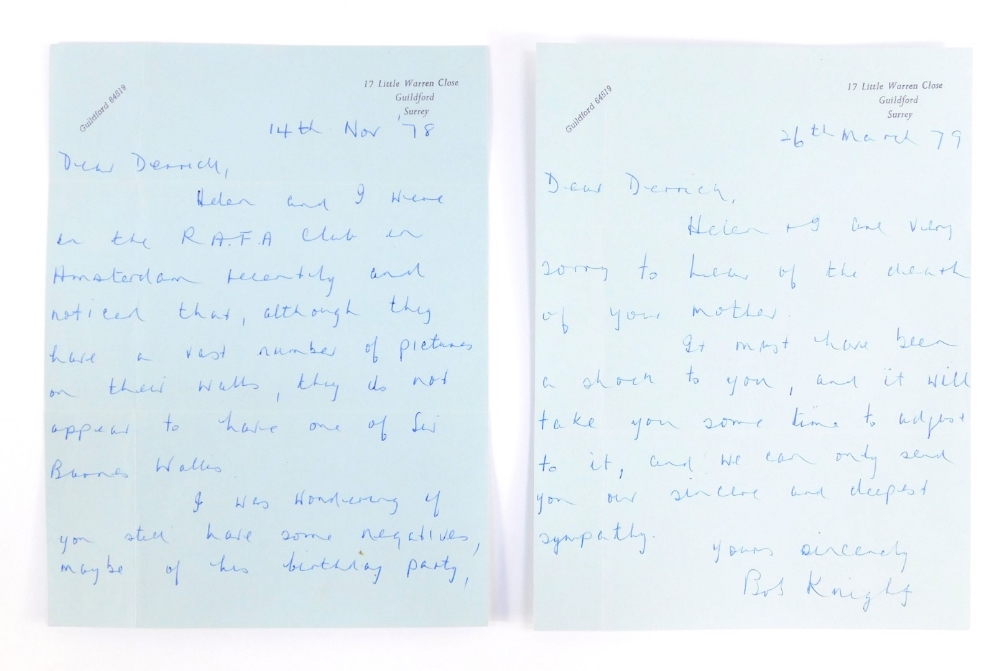 Guildford 64519
17 Little Warren Close
Guildford
Surrey
14th Nov '78
Dear Derrick,
Helen and I were
in the R.A.F.A Club in
Amsterdam recently and
noticed that, although they
have a vast number of pictures
on their walls, they do not
appear to have one of Sir
Barnes Wallis
I was wondering if
you still have some negatives,
maybe of his birthday party,
Guildford 64519
17 Little Warren Close
Guildford
Surrey
26th March 79
Dear Derrick,
Helen + I are very
sorry to hear of the death
of your mother.
It must have been
a shock to you, and it will
take you some time to adjust
to it, and we can only send
you our sincere and deepest
sympathy.
Yours sincerely
Bob Knight